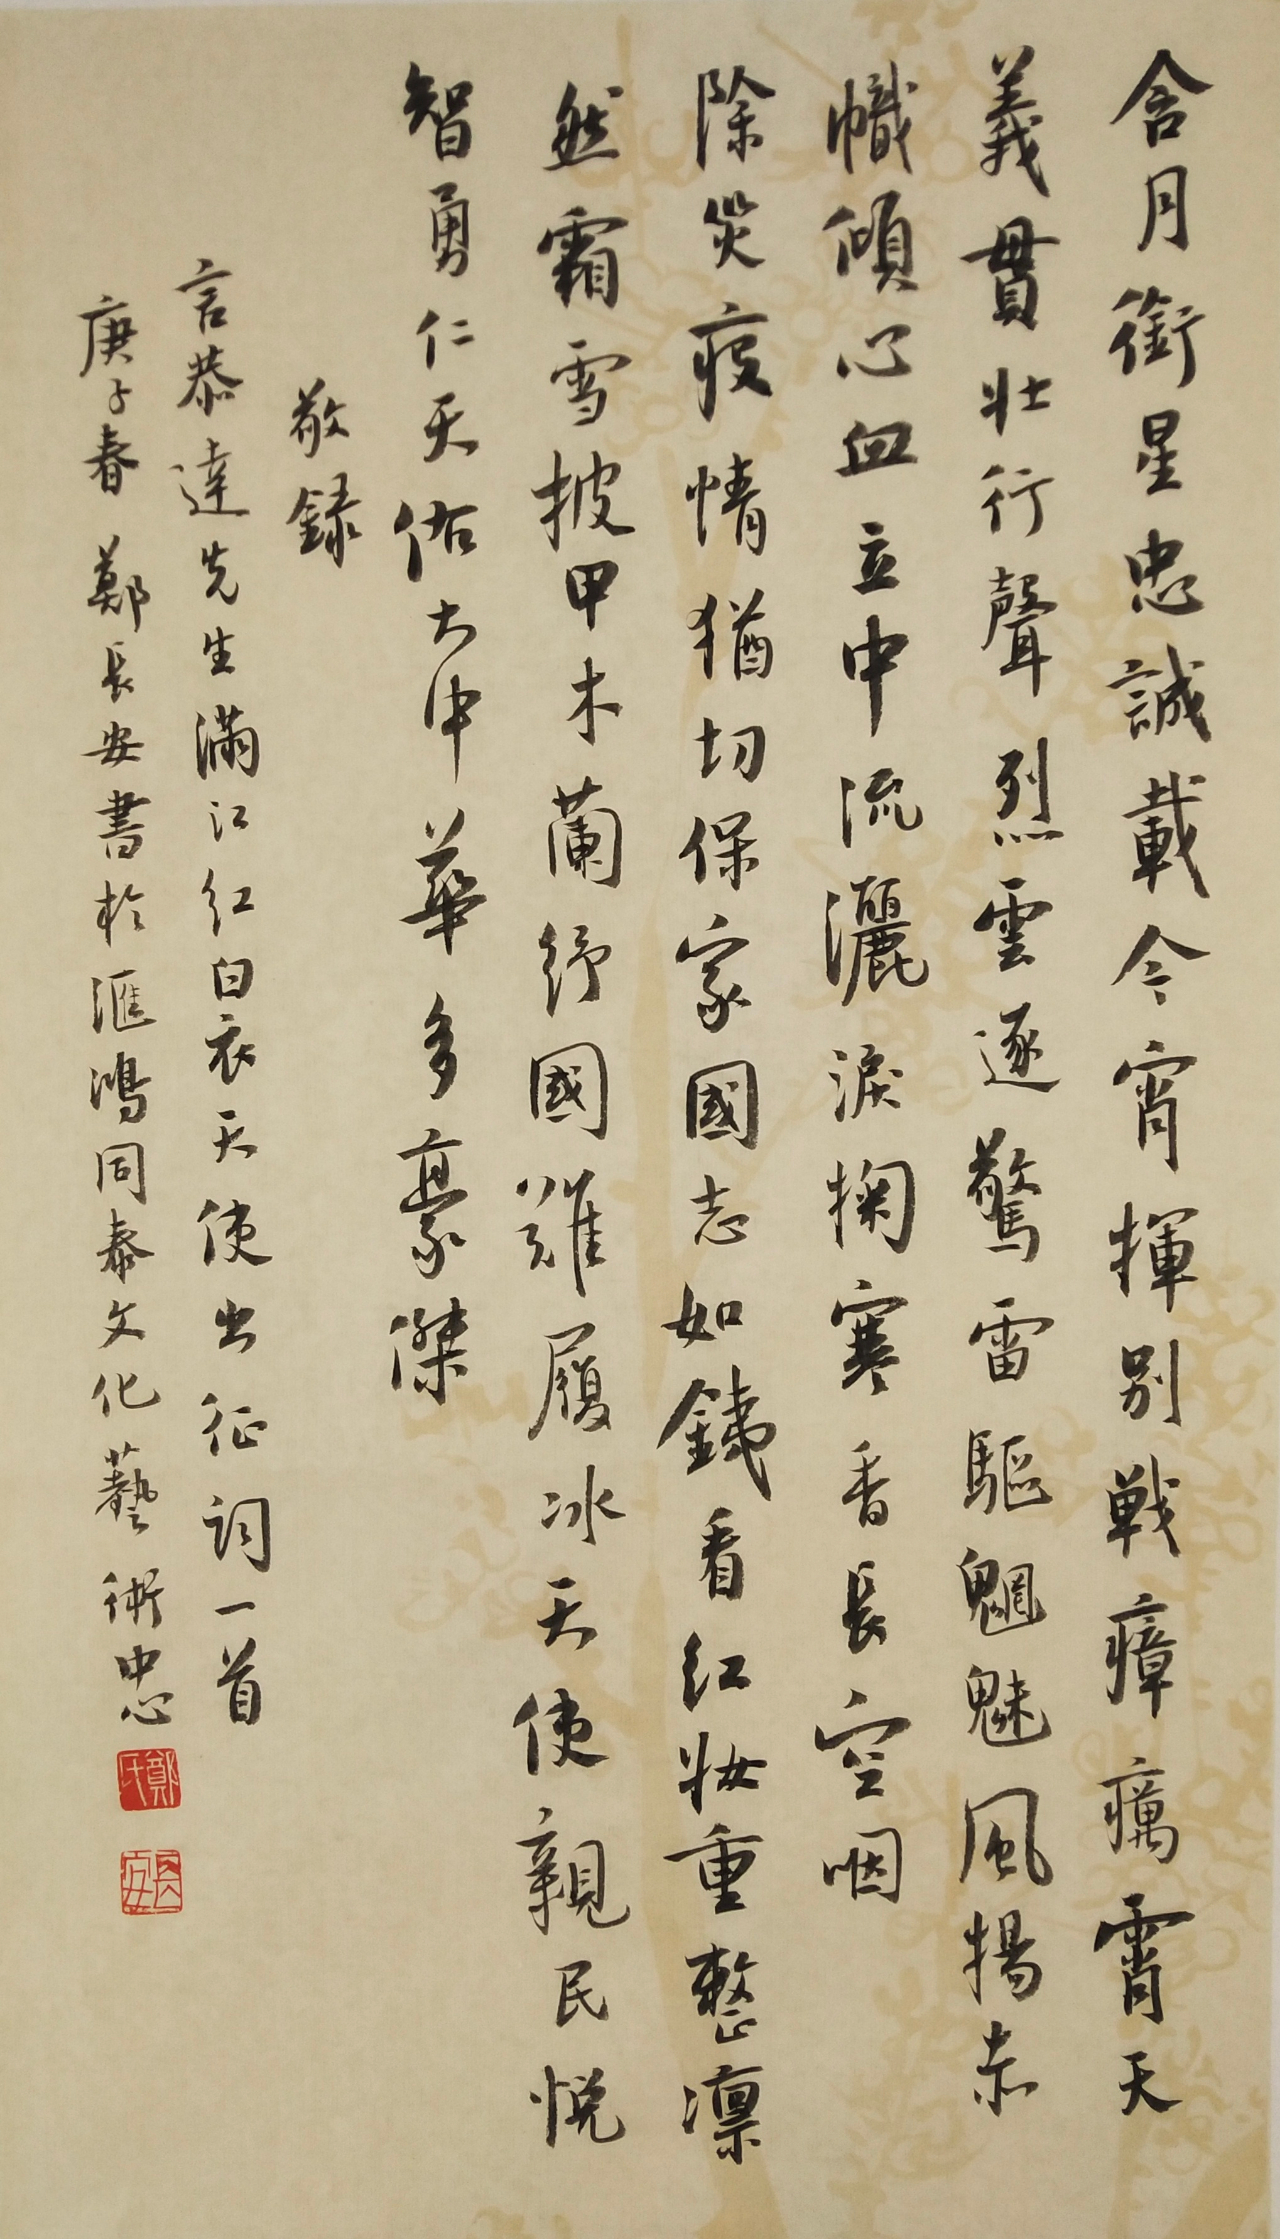 含月銜星忠誠載今宵揮別戰瘴癘霄天
義貫壯行聲烈雲逐驚雷驅魍魅風揚赤
幟傾心血立中流灑淚掬寒香長空咽
除災疫情猶切保家國志如鐵看紅妝重整凜
然霜雪披甲木蘭紓國難履冰天使親民悅
智勇仁天佑大中華多豪傑
敬録
言恭達先生滿江紅白衣天使出征詞一首
庚子春 鄭長安書於滙鴻同泰文化藝術中心
鄭氏
長安